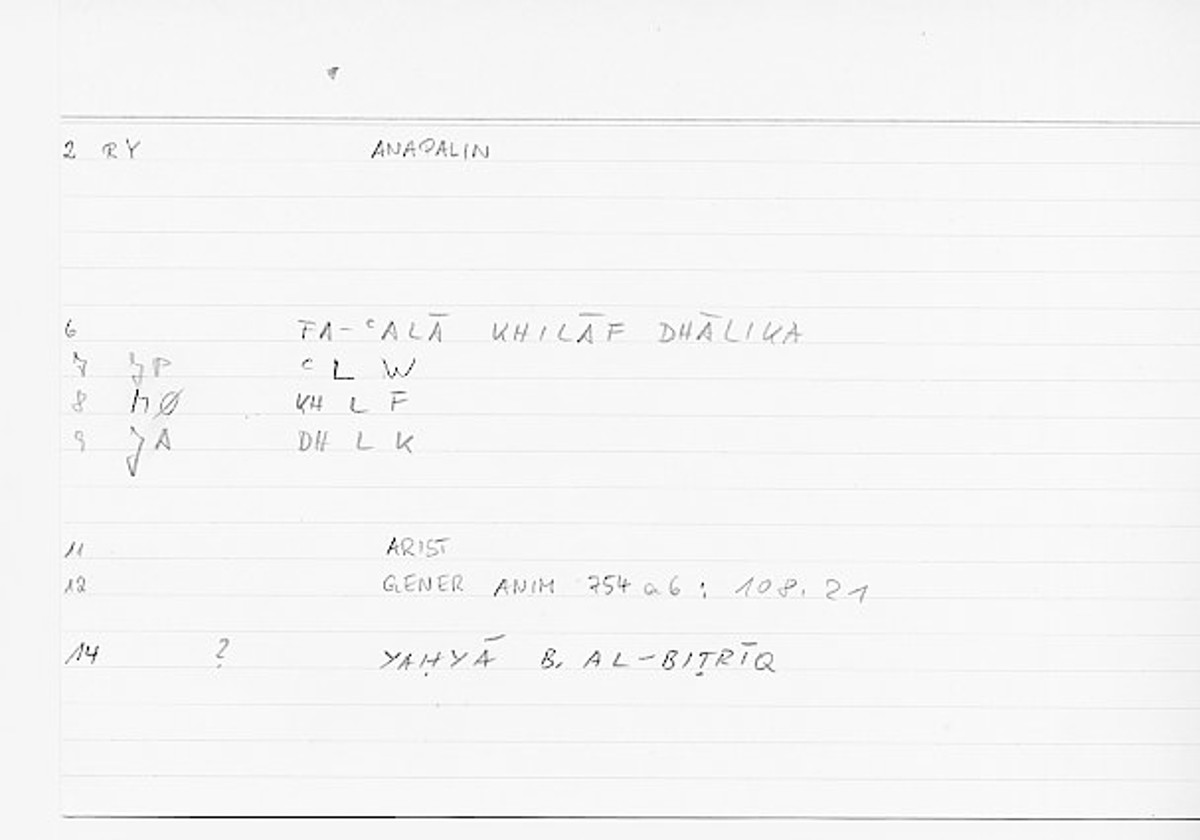 2 RY ANAPALIN
6 FA-ᶜALĀ KHILĀF DHĀLIKA
7 JP ᶜ L W
8 MØ KH L F
9 JA DH L K
11 ARIST
12 GENER ANIM 754 a 6 : 108. 21
14 ? YAḤYĀ B. AL-BIṬRĪQ